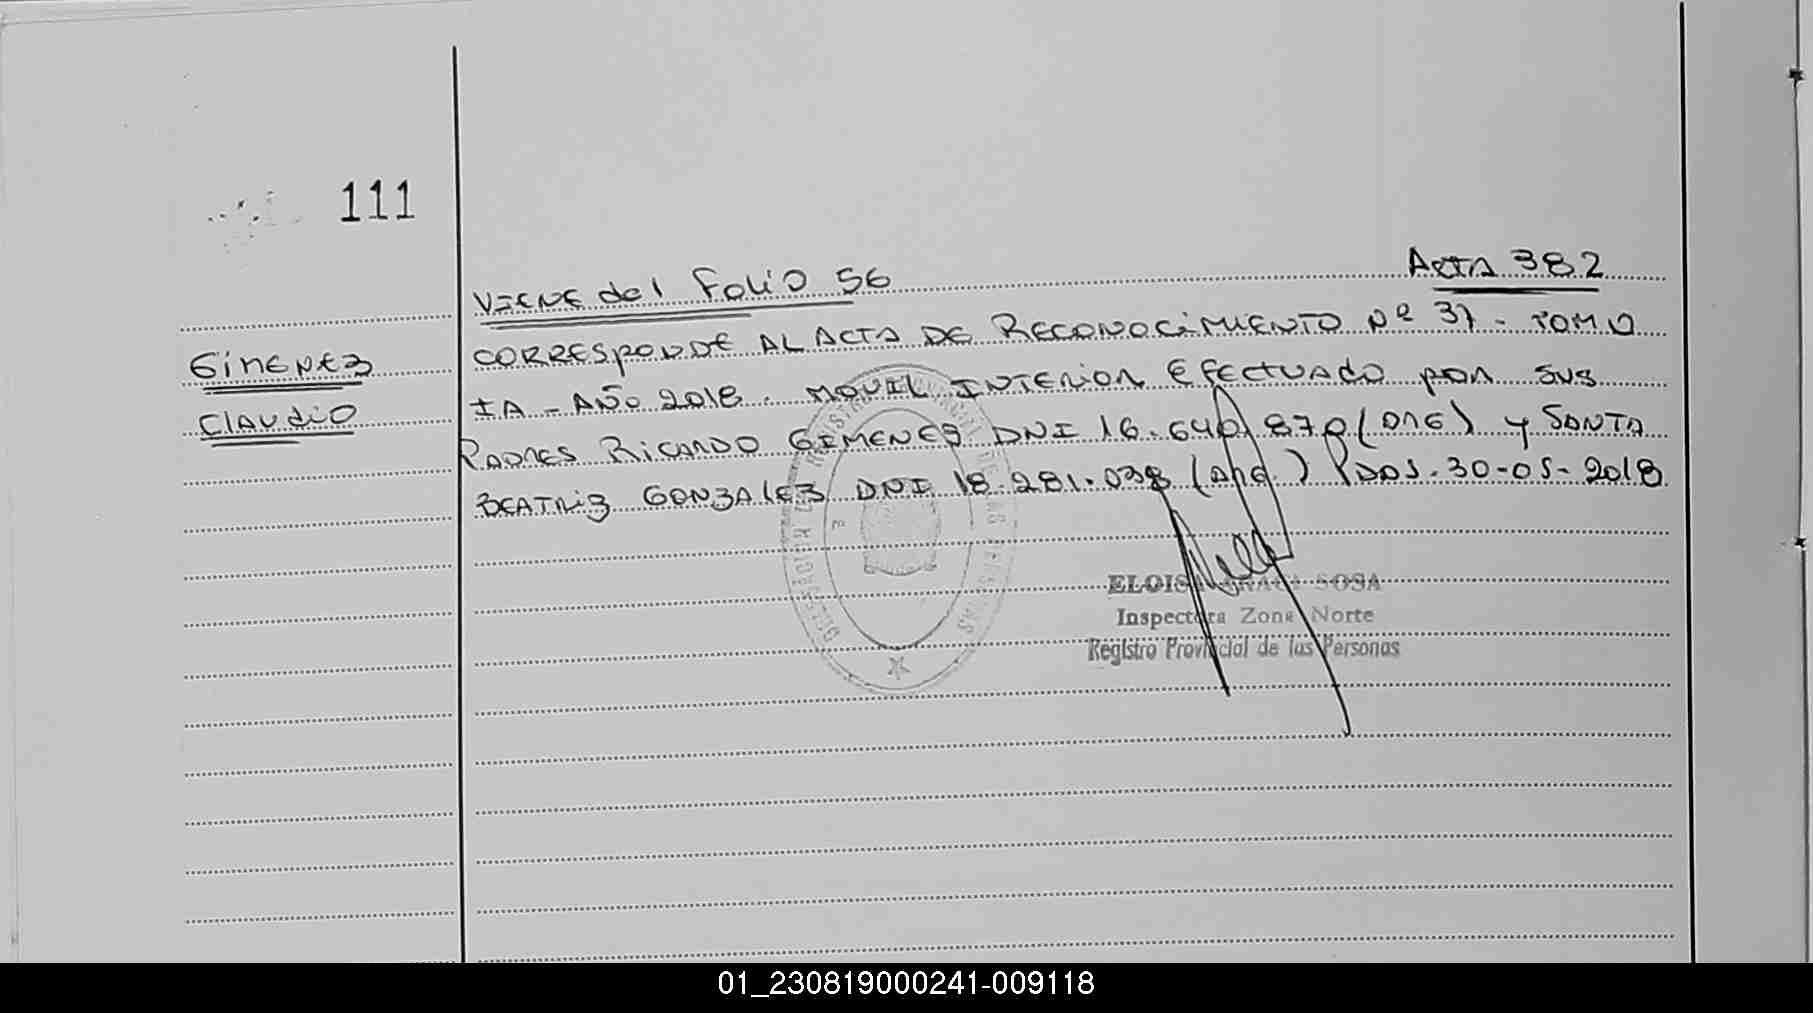 111
Viene del Folio 56
Acta 382
Gimenez
Claudio
Corresponde al Acta de Reconocimiento Nº 37 - Tomo
IA - Año 2018. Movil Interior efectuado por sus
Padres Ricardo Gimenez DNI 16.640.870 (arg) y Santa
Beatriz Gonzalez DNI 18.281.038 (arg.) Pdas. 30-05-2018
ELOISA SOSA
Inspectora Zona Norte
Registro Provincial de las Personas
01_230819000241-009118